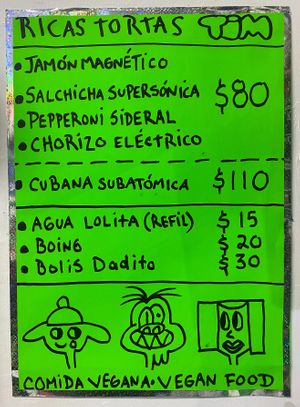 RICAS TORTAS TIM
• JAMÓN MAGNÉTICO
• SALCHICHA SUPERSÓNICA $80
• PEPPERONI SIDERAL
• CHORIZO ELÉCTRICO
• CUBANA SUBATÓMICA $110
• AGUA LOLITA (REFIL) $15
• BOING $20
• Bolis Dadito $30
COMIDA VEGANA • VEGAN FOOD